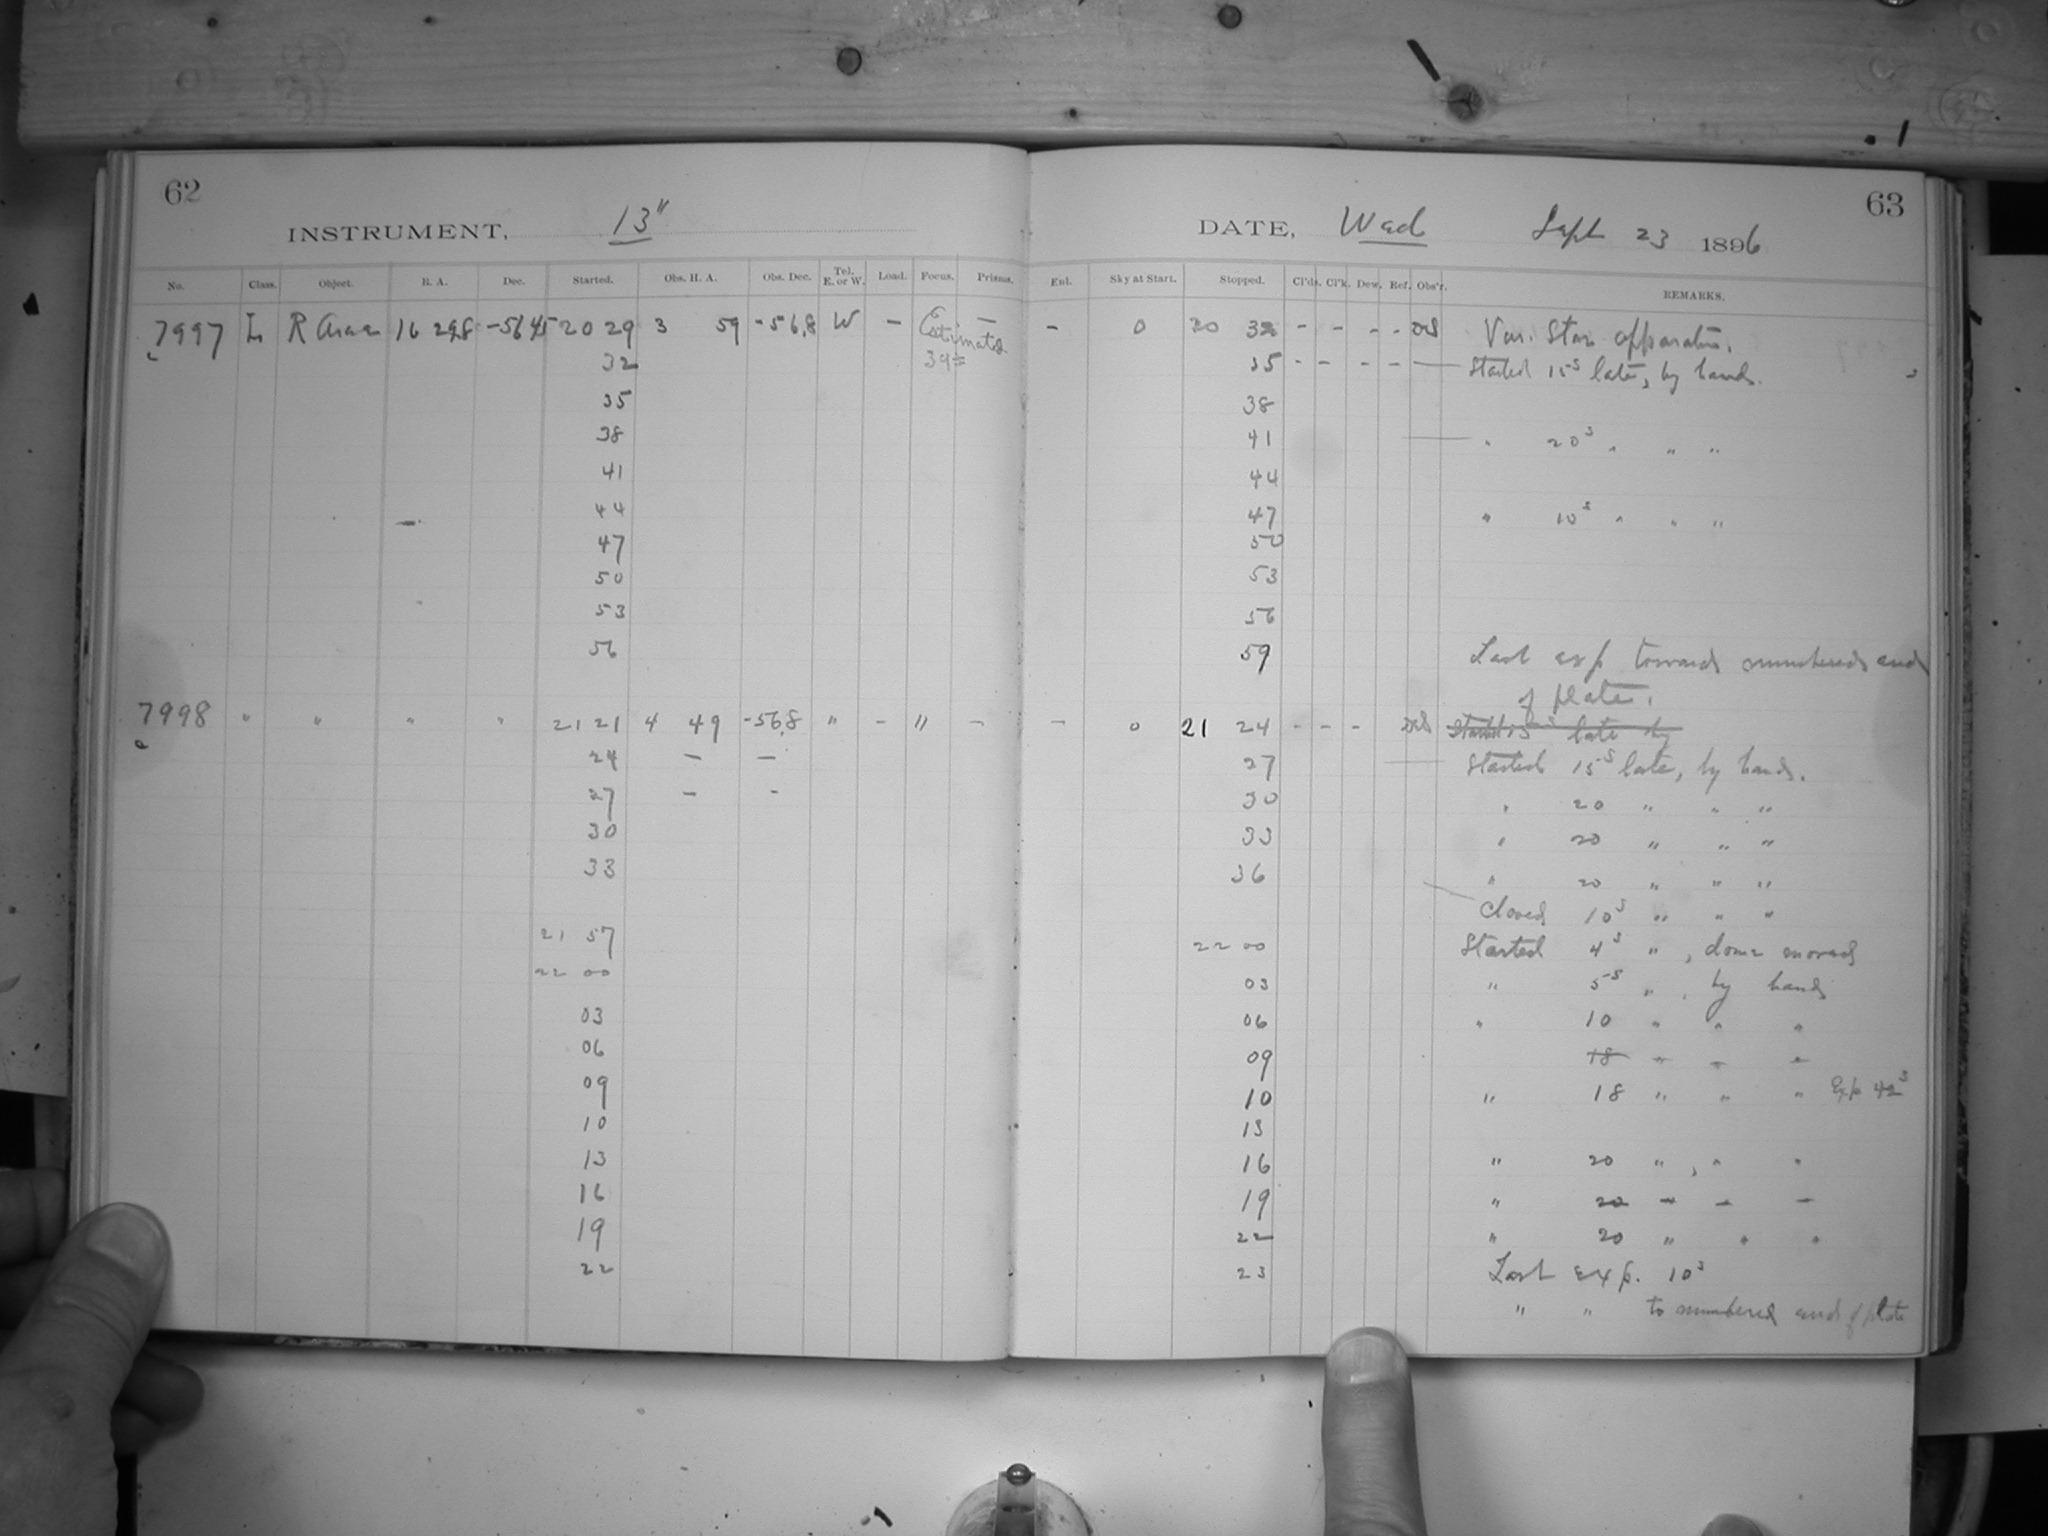 62
INSTRUMENT, 13"
No. Class. Object. R. A. Dec. Started. Obs. H. A. Obs. Dec. Tel. E. or W. Load. Focus. Prisms.
7997 L R Arae 16 29.8 -56 45 20 29 3 59 -56.8 W - Estimated -
32 39=
35
38
41
44
47
50
53
56
7998 " " " " 21 21 4 49 -56.8 " - " -
24 - -
27 - -
30
33
21 57
22 00
03
06
09
10
13
16
19
22
63
DATE, Wed Sept 23 1896
Enl. Sky at Start. Stopped. Cl'ds. Cl'k. Dew. Ref. Obs'r. REMARKS.
- 0 20 32 - - - - Var. Star apparatus.
35 - - - - Started 15s late, by hand.
38
41 " 20s " " "
44
47 " 10s " " "
50
53
56
59 Last exp towards numbered end
of plate.
- 0 21 24 - - - Started 15s late by
27 Started 15s late, by hand.
30 " 20 " " "
33 " 20 " " "
36 " 20 " " "
Closed 10s " " "
22 00 Started 4s ", dome moved
03 " 5s ", by hand
06 " 10 " " "
09 18 " " "
10 " 18 " " " Exp 42s
13
16 " 20 ", " "
19 " 20 " " "
22 " 20 " " "
23 Last exp. 10s
" " to numbered end of plate